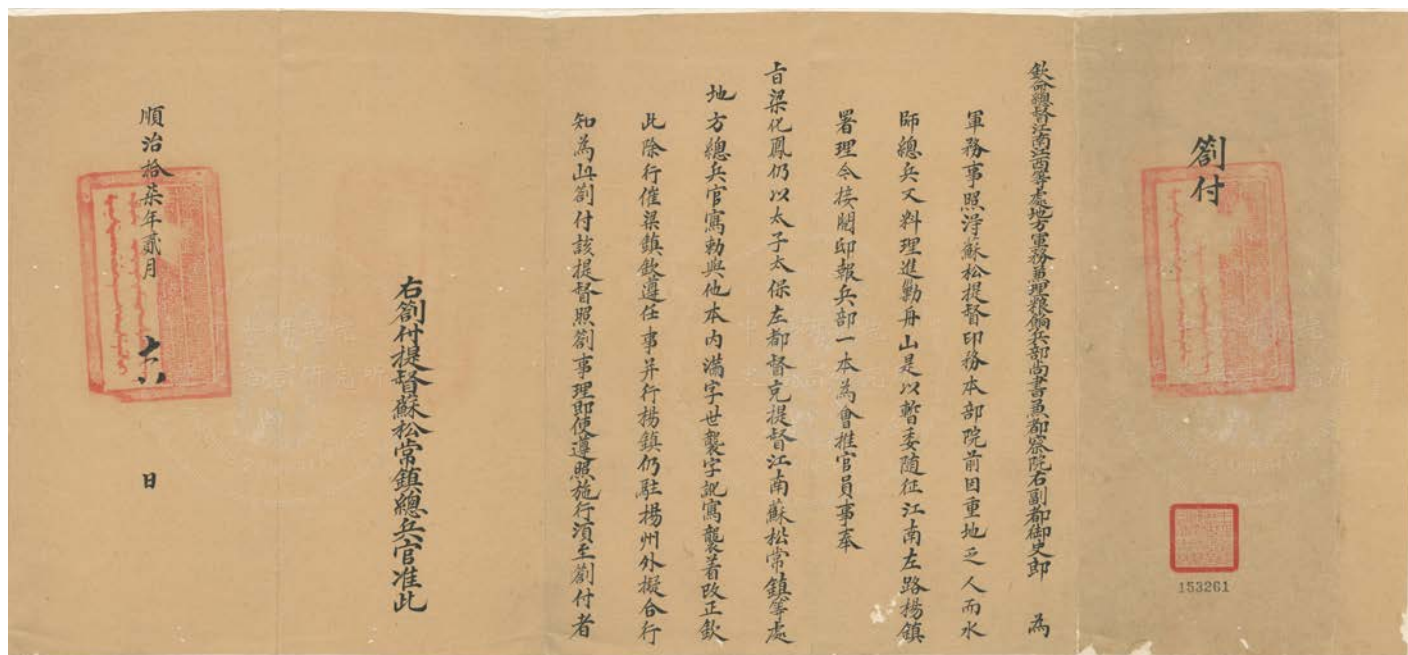 劄付
欽命總督江南江西等處地方軍務兼理粮餉兵部尚書兼都察院右副都御史郎　為
軍務事照淂蘇松提督印務本部院前因重地乏人而水
師總兵又料理進勦舟山是以暫委随征江南左路楊鎮
署理今接閱邸報兵部一本為會推官員事奉
㫖梁化鳳仍以太子太保左都督充提督江南蘇松常鎮等處
地方總兵官寫勅與他本内滿字世襲字訛寫襲着改正欽
此除行催梁鎮欽遵任事并行楊鎮仍駐揚州外擬合行
知為此劄付該提督照劄事理即便遵照施行湏至劄付者
右劄付提督蘇松常鎮總兵官准此
順治拾柒年貳月
日
153261